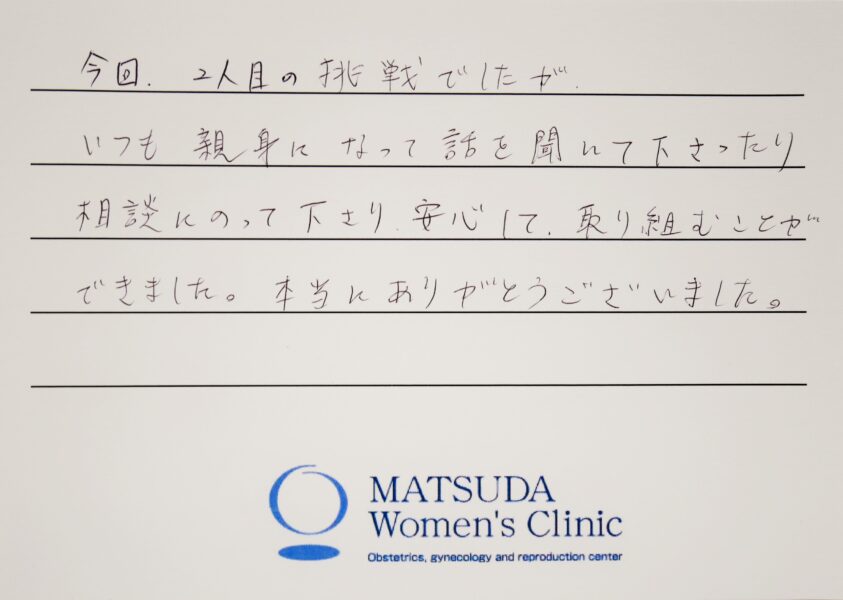 今回、2人目の挑戦でしたが、
いつも親身になって話を聞いて下さったり
相談にのって下さり、安心して、取り組むことが
できました。本当にありがとうございました。
MATSUDA
Women's Clinic
Obstetrics, gynecology and reproduction center